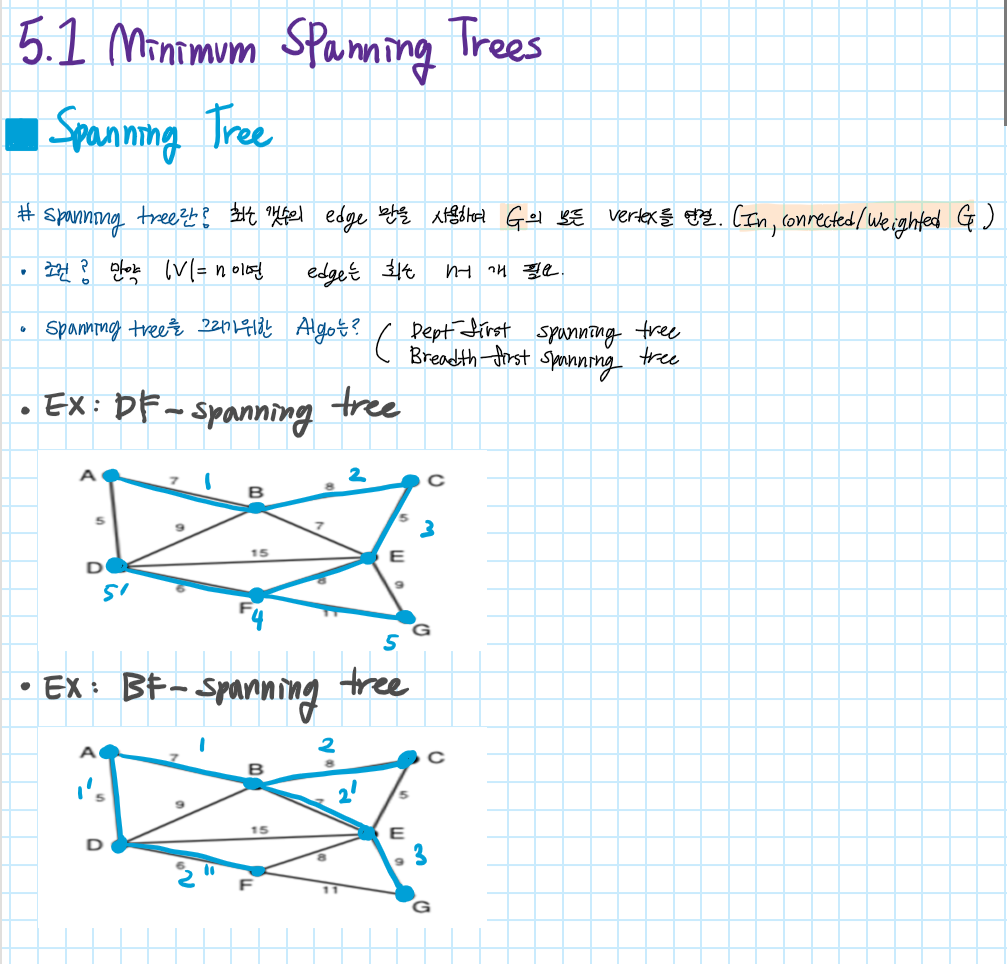 5.1 Minimum Spanning Trees
Spanning Tree
# Spanning tree란? 최소 갯수의 edge 만을 사용하여 G의 모든 vertex를 연결. (In, connected/Weighted G)
• 조건? 만약 |V|= n 이면 edge는 최소 n-1 개 필요.
• Spanning tree를 그리기위한 Algo는? ( Dept-first spanning tree
Breadth-first spanning tree
• EX: DF-spanning tree
A 7 1 B 8 2 C
5 9 7 5 3
D 15 E
5' 6 F 4 8 11 9 5 G
• EX: BF-spanning tree
A 7 1 B 8 2 C
1' 5 9 7 2' 5
D 15 E
6 2'' F 8 11 9 3 G